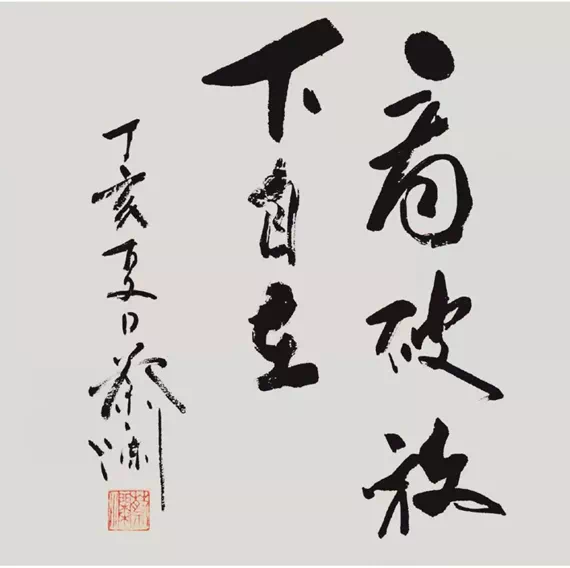 看破放
下自在
丁亥夏日蔡澜